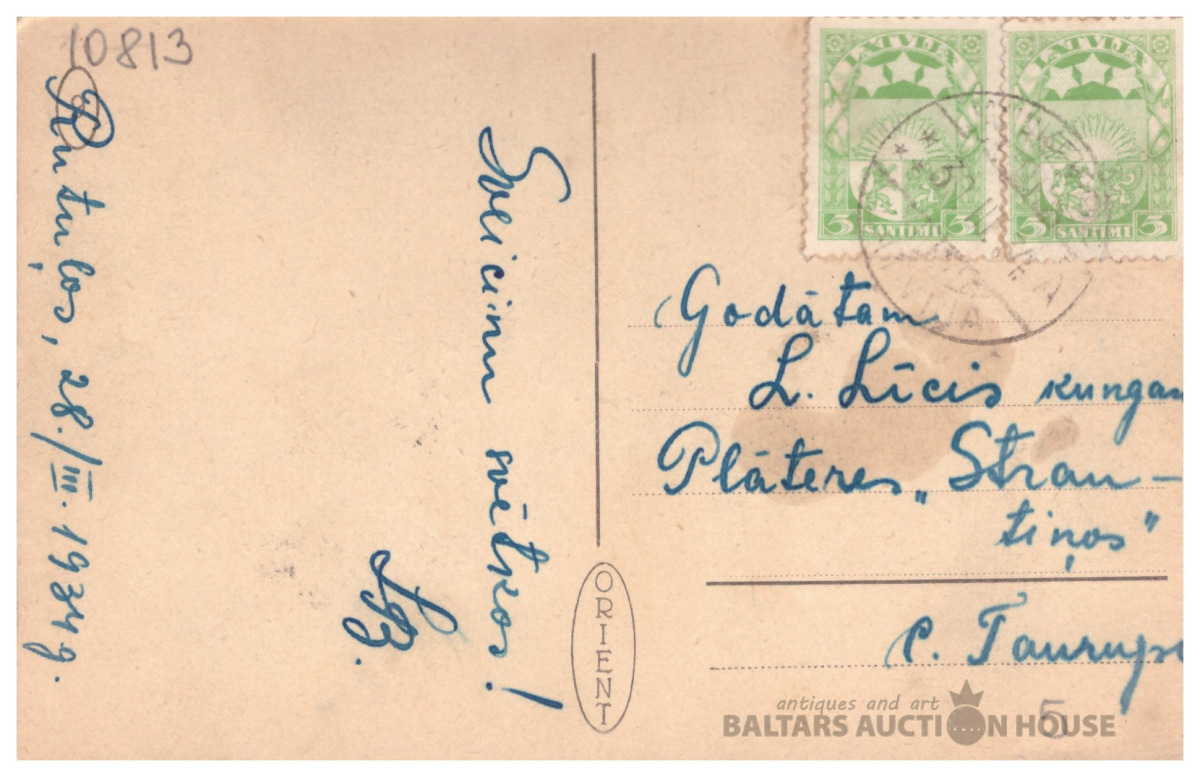 10813
Rutuļos, 28./III. 1934 g.
Sveicinu svētkos!
ORIENT
LATVIJA
3 SANTIMI 3
LATVIJA
3 SANTIMI 3
Godātam
L. Līcis kungam
Plāteres „Strau-
tiņos"
c. Taurupi
5
antiques and art
BALTARS AUCTION HOUSE